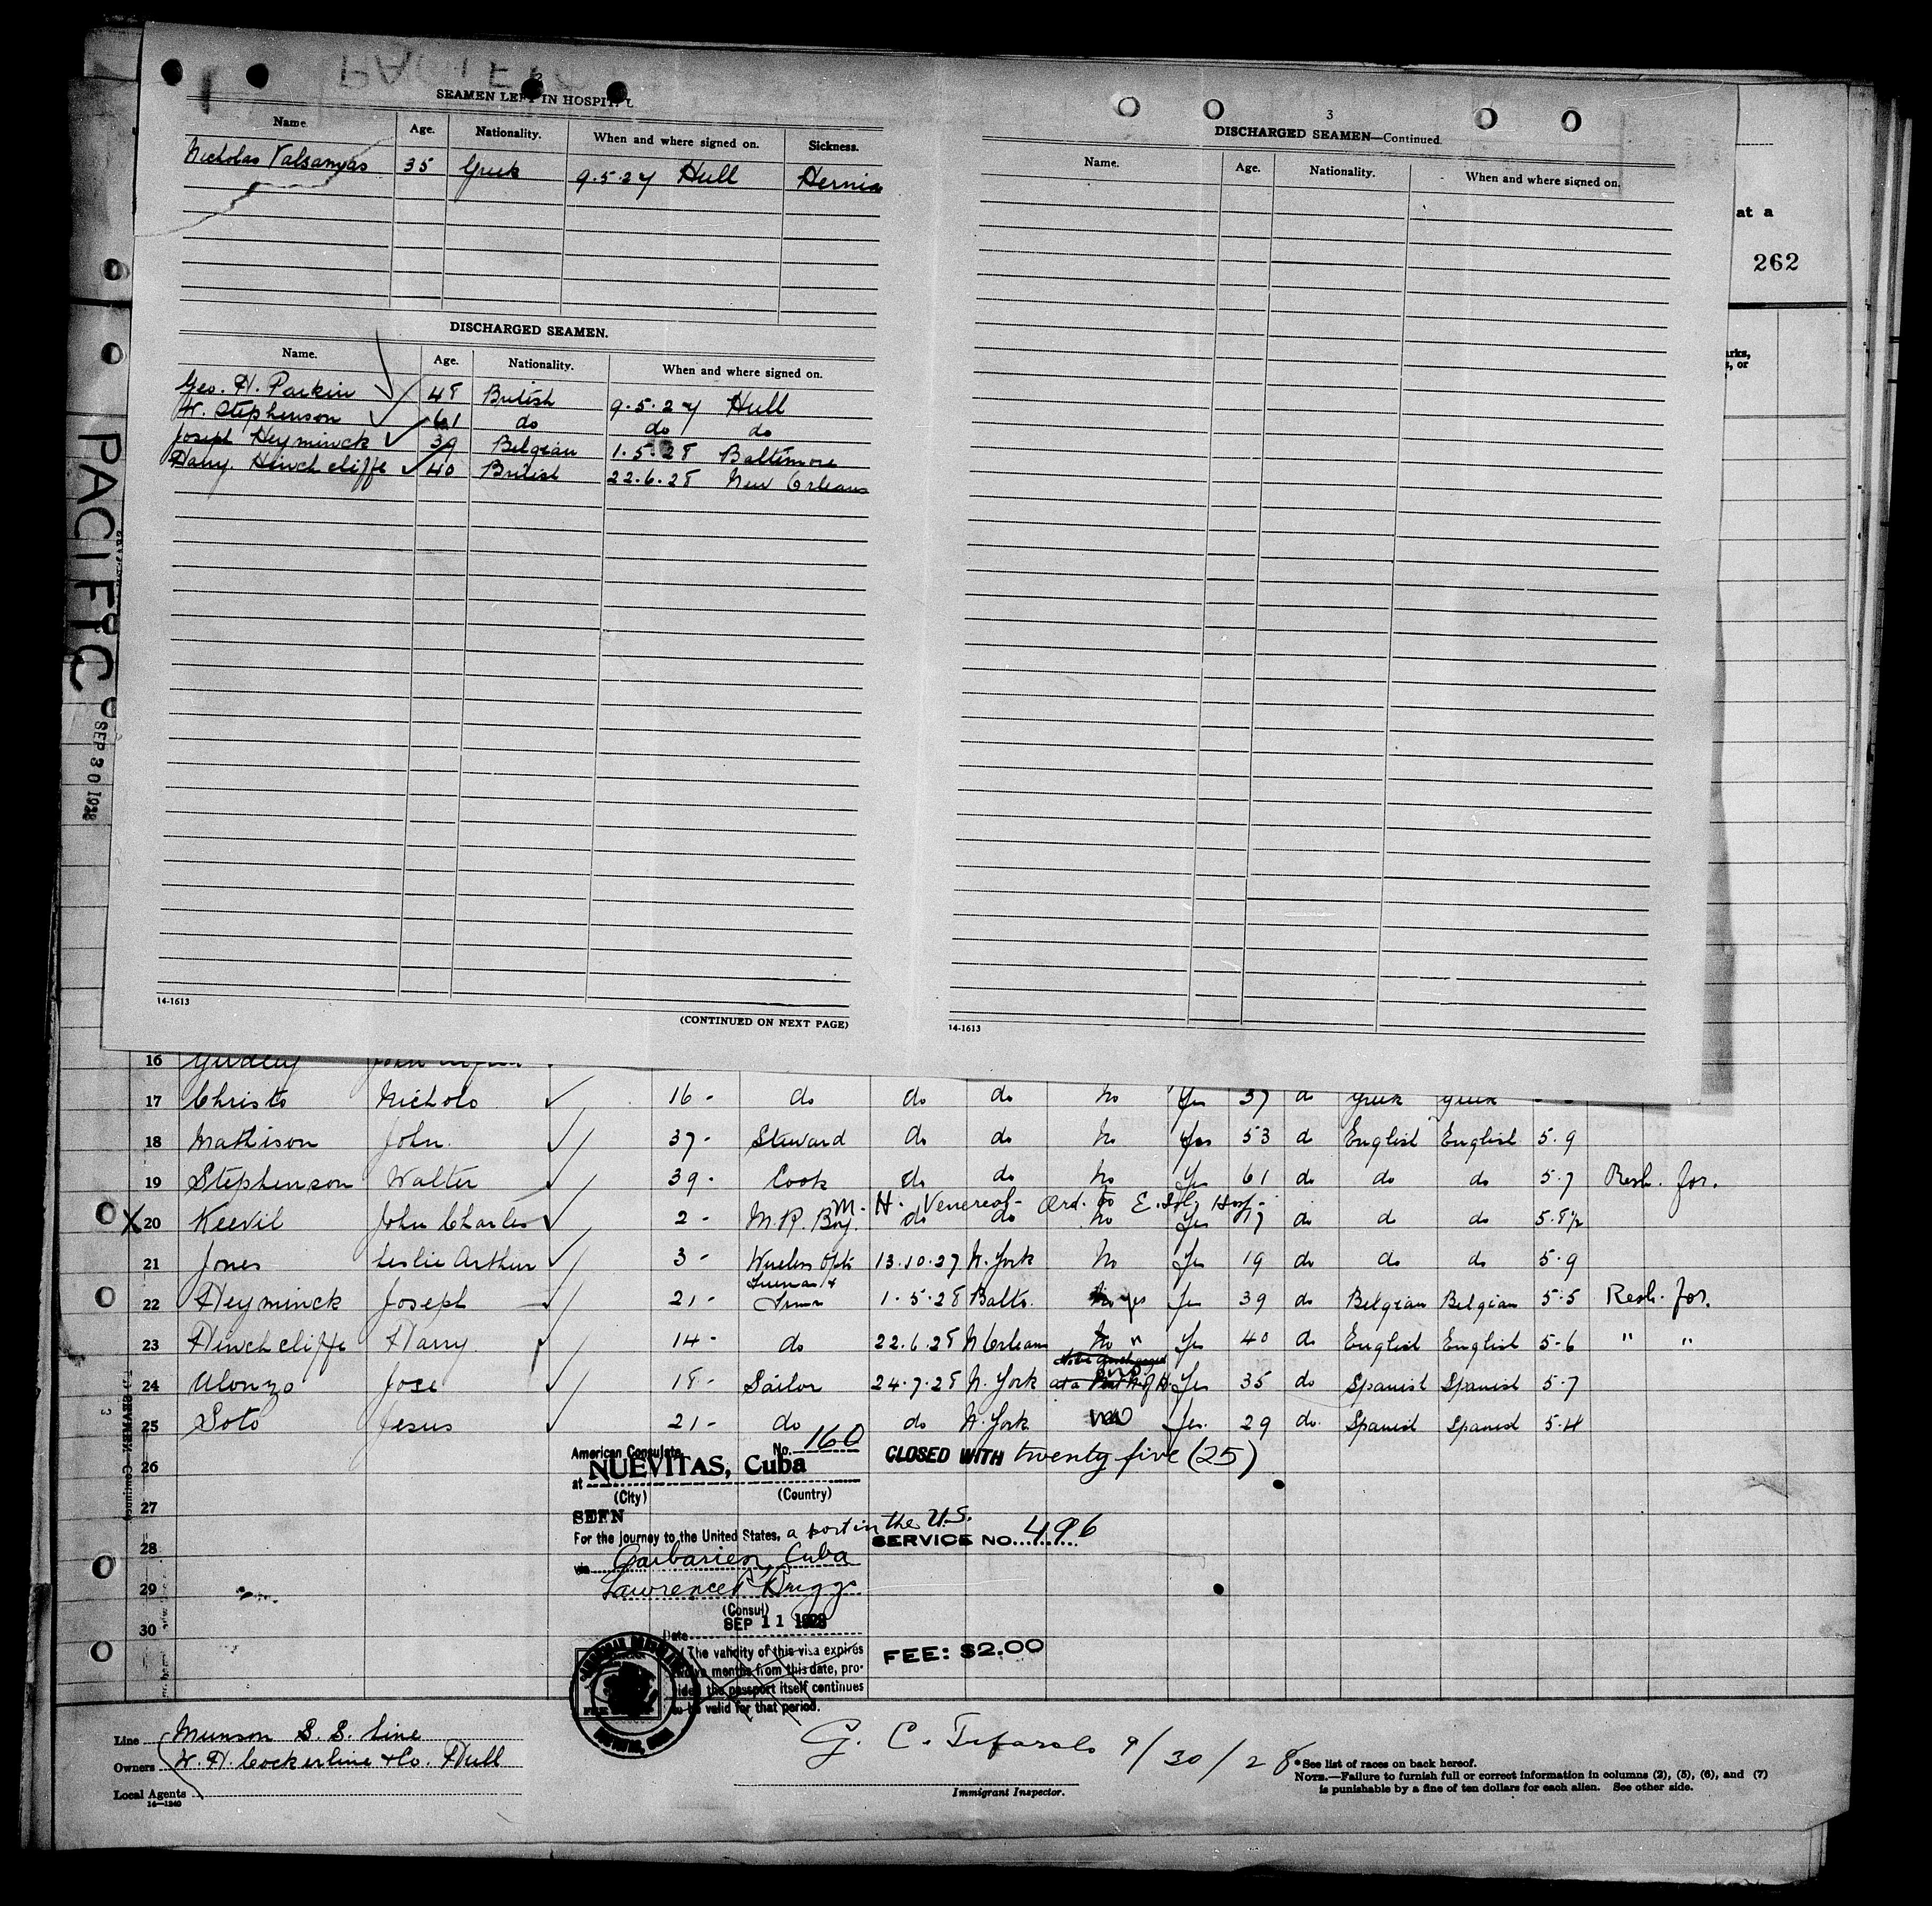 PACIFIC
SEAMEN LEFT IN HOSPITAL
Name. Age. Nationality. When and where signed on. Sickness.
Nicholas Valsamas 35 Greek 9.5.27 Hull Hernia
DISCHARGED SEAMEN.
Name. Age. Nationality. When and where signed on.
Geo. H. Parkin 48 British 9.5.27 Hull
W. Stephenson 61 do do do
Joseph Heyminck 39 Belgian 1.5.28 Baltimore
Harry. Hinchcliffe 40 British 22.6.28 New Orleans
14-1613
(CONTINUED ON NEXT PAGE)
3
DISCHARGED SEAMEN—Continued
Name. Age. Nationality. When and where signed on.
14-1613
at a
262
PACIFIC
SEP 30 1928
16 Yeadley John
17 Christo Nicholo 16 - do do do No Yes 37 do Greek Greek
18 Mathison John. 37 - Steward do do No Yes 53 do English English 5.9
19 Stephenson Walter 39 - Cook do do No Yes 61 do do do 5.7 Resh. for.
M. H. Venereal - Ord. to E. Isl. Hosp -
X 20 Keevil John Charles 2 - M.R. Boy. do do No Yes 17 do do do 5.8½
21 Jones Leslie Arthur 3 - Wireless Optr 13.10.27 N. York No Yes 19 do do do 5.9
22 Heyminck Joseph 21 - Fireman & Trimr 1.5.28 Balto. No yes Yes 39 do Belgian Belgian 5.5 Resh. for.
23 Hinchcliffe Harry. 14 - do 22.6.28 N Orleans No " Yes 40 do English English 5-6 " "
24 Alonzo Jose 18 - Sailor 24.7.28 N. York Yes 35 do Spanish Spanish 5-7
25 Soto Jesus 21 - do do N. York No Yes. 29 do. Spanish Spanish 5-4
26
27
28
29
30
American Consulate No. 160
at NUEVITAS, Cuba
(City) (Country)
SEEN
For the journey to the United States, a port in the U.S.
via Caibarien, Cuba
Lawrence Briggs
(Consul)
Date SEP 11 1928
(The validity of this visa expires
twelve months from this date, pro-
vided the passport itself continues
to be valid for that period.
CLOSED WITH twenty five (25)
SERVICE NO. 496
FEE: $2.00
Line Munson S. S. Line
Owners W. H. Cockerline & Co. Hull
Local Agents
14—1240
G. C. 9/30/28
Immigrant Inspector.
*See list of races on back hereof.
NOTE.—Failure to furnish full or correct information in columns (2), (5), (6), and (7)
is punishable by a fine of ten dollars for each alien. See other side.